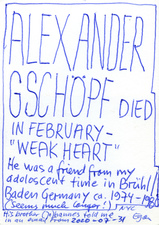 ALEXANDER
GSCHÖPF DIED
IN FEBRUARY-
"WEAK HEART"
He was a friend from my
adoloscent time in Brühl/
Baden Germany ca. 1974-1980
(seems much longer!)
His brother Johannes told me
in an email from 2020-07-31